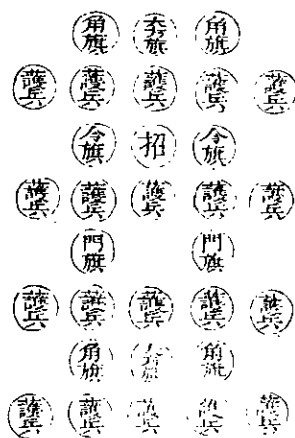 角旗 角旗
護兵 護兵 護兵 護兵 護兵
令旗 招 令旗
護兵 護兵 護兵 護兵 護兵
門旗 門旗
護兵 護兵 護兵 護兵 護兵
角旗 角旗
護兵 護兵 護兵 護兵 護兵